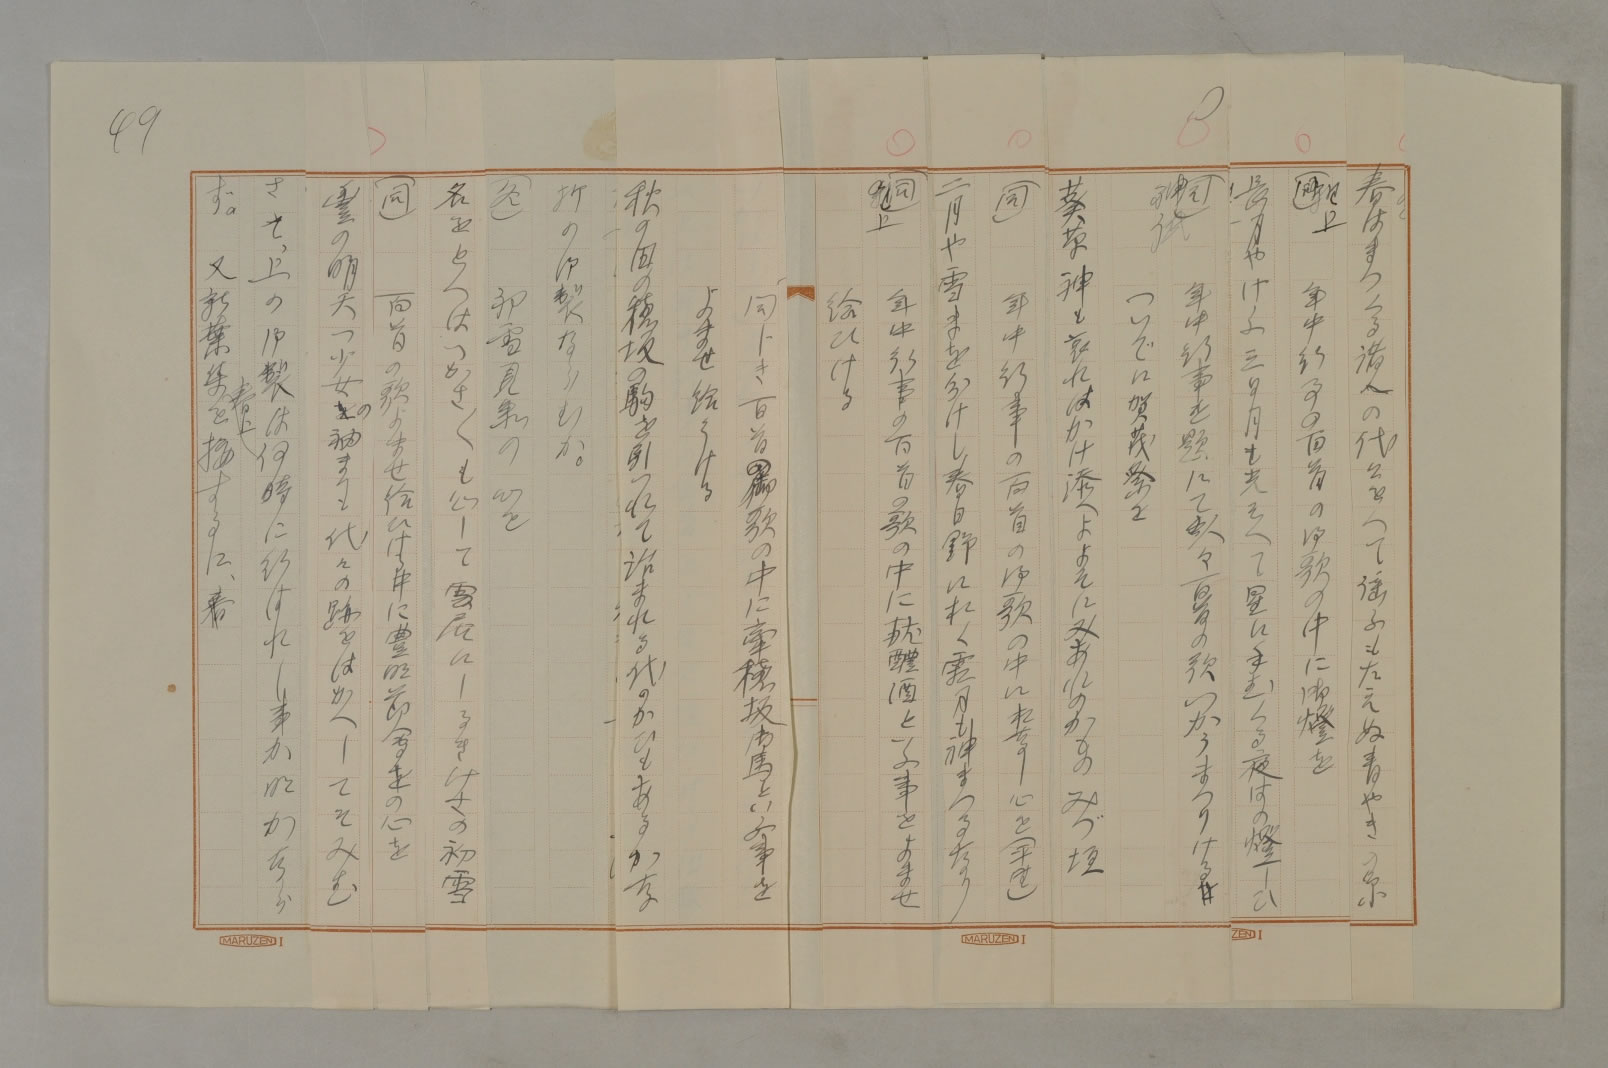 49
春はまつくる諸人の代々をへて徭ふもたえぬ青やきの糸
同上
年中行事の百首の御歌の中に御燈を
長月やけふ三日月も光そへて星に手向くる夜はの燈し火
同 神祇
年中行事を題にて人々百首の歌つかうまつりける中
ついでに賀茂祭を
葵草神も哀れはかけ添へよよそに又あれのかものみづ垣
同
年中行事の百首の御歌の中に
二月や雪まを分けし春日野におく霜月も神まつるなり
同 上
年中行事の百首の歌の中に献醴酒といふ事をよませ
給ひける
同じき百首御歌の中に牽穂坂御馬といふ事を
よませ給うける
秋の田の穂坂の駒を引つれて治まれる代のかひもあるかな
折の御製ならむか。
初雪見参の心を
名をとへはつかさくも心して雲居にしるきけさの初雪
同
百首の歌よませ給ひける中に豊明節会の心を
雲の明天つ少女の袖までも代々の跡をはかへしてそみむ
さて、上の御製は何時に行はれし事か明かなら
ず。又新葉集を按するに、春
春上
MARUZEN I
MARUZEN I
ZEN I